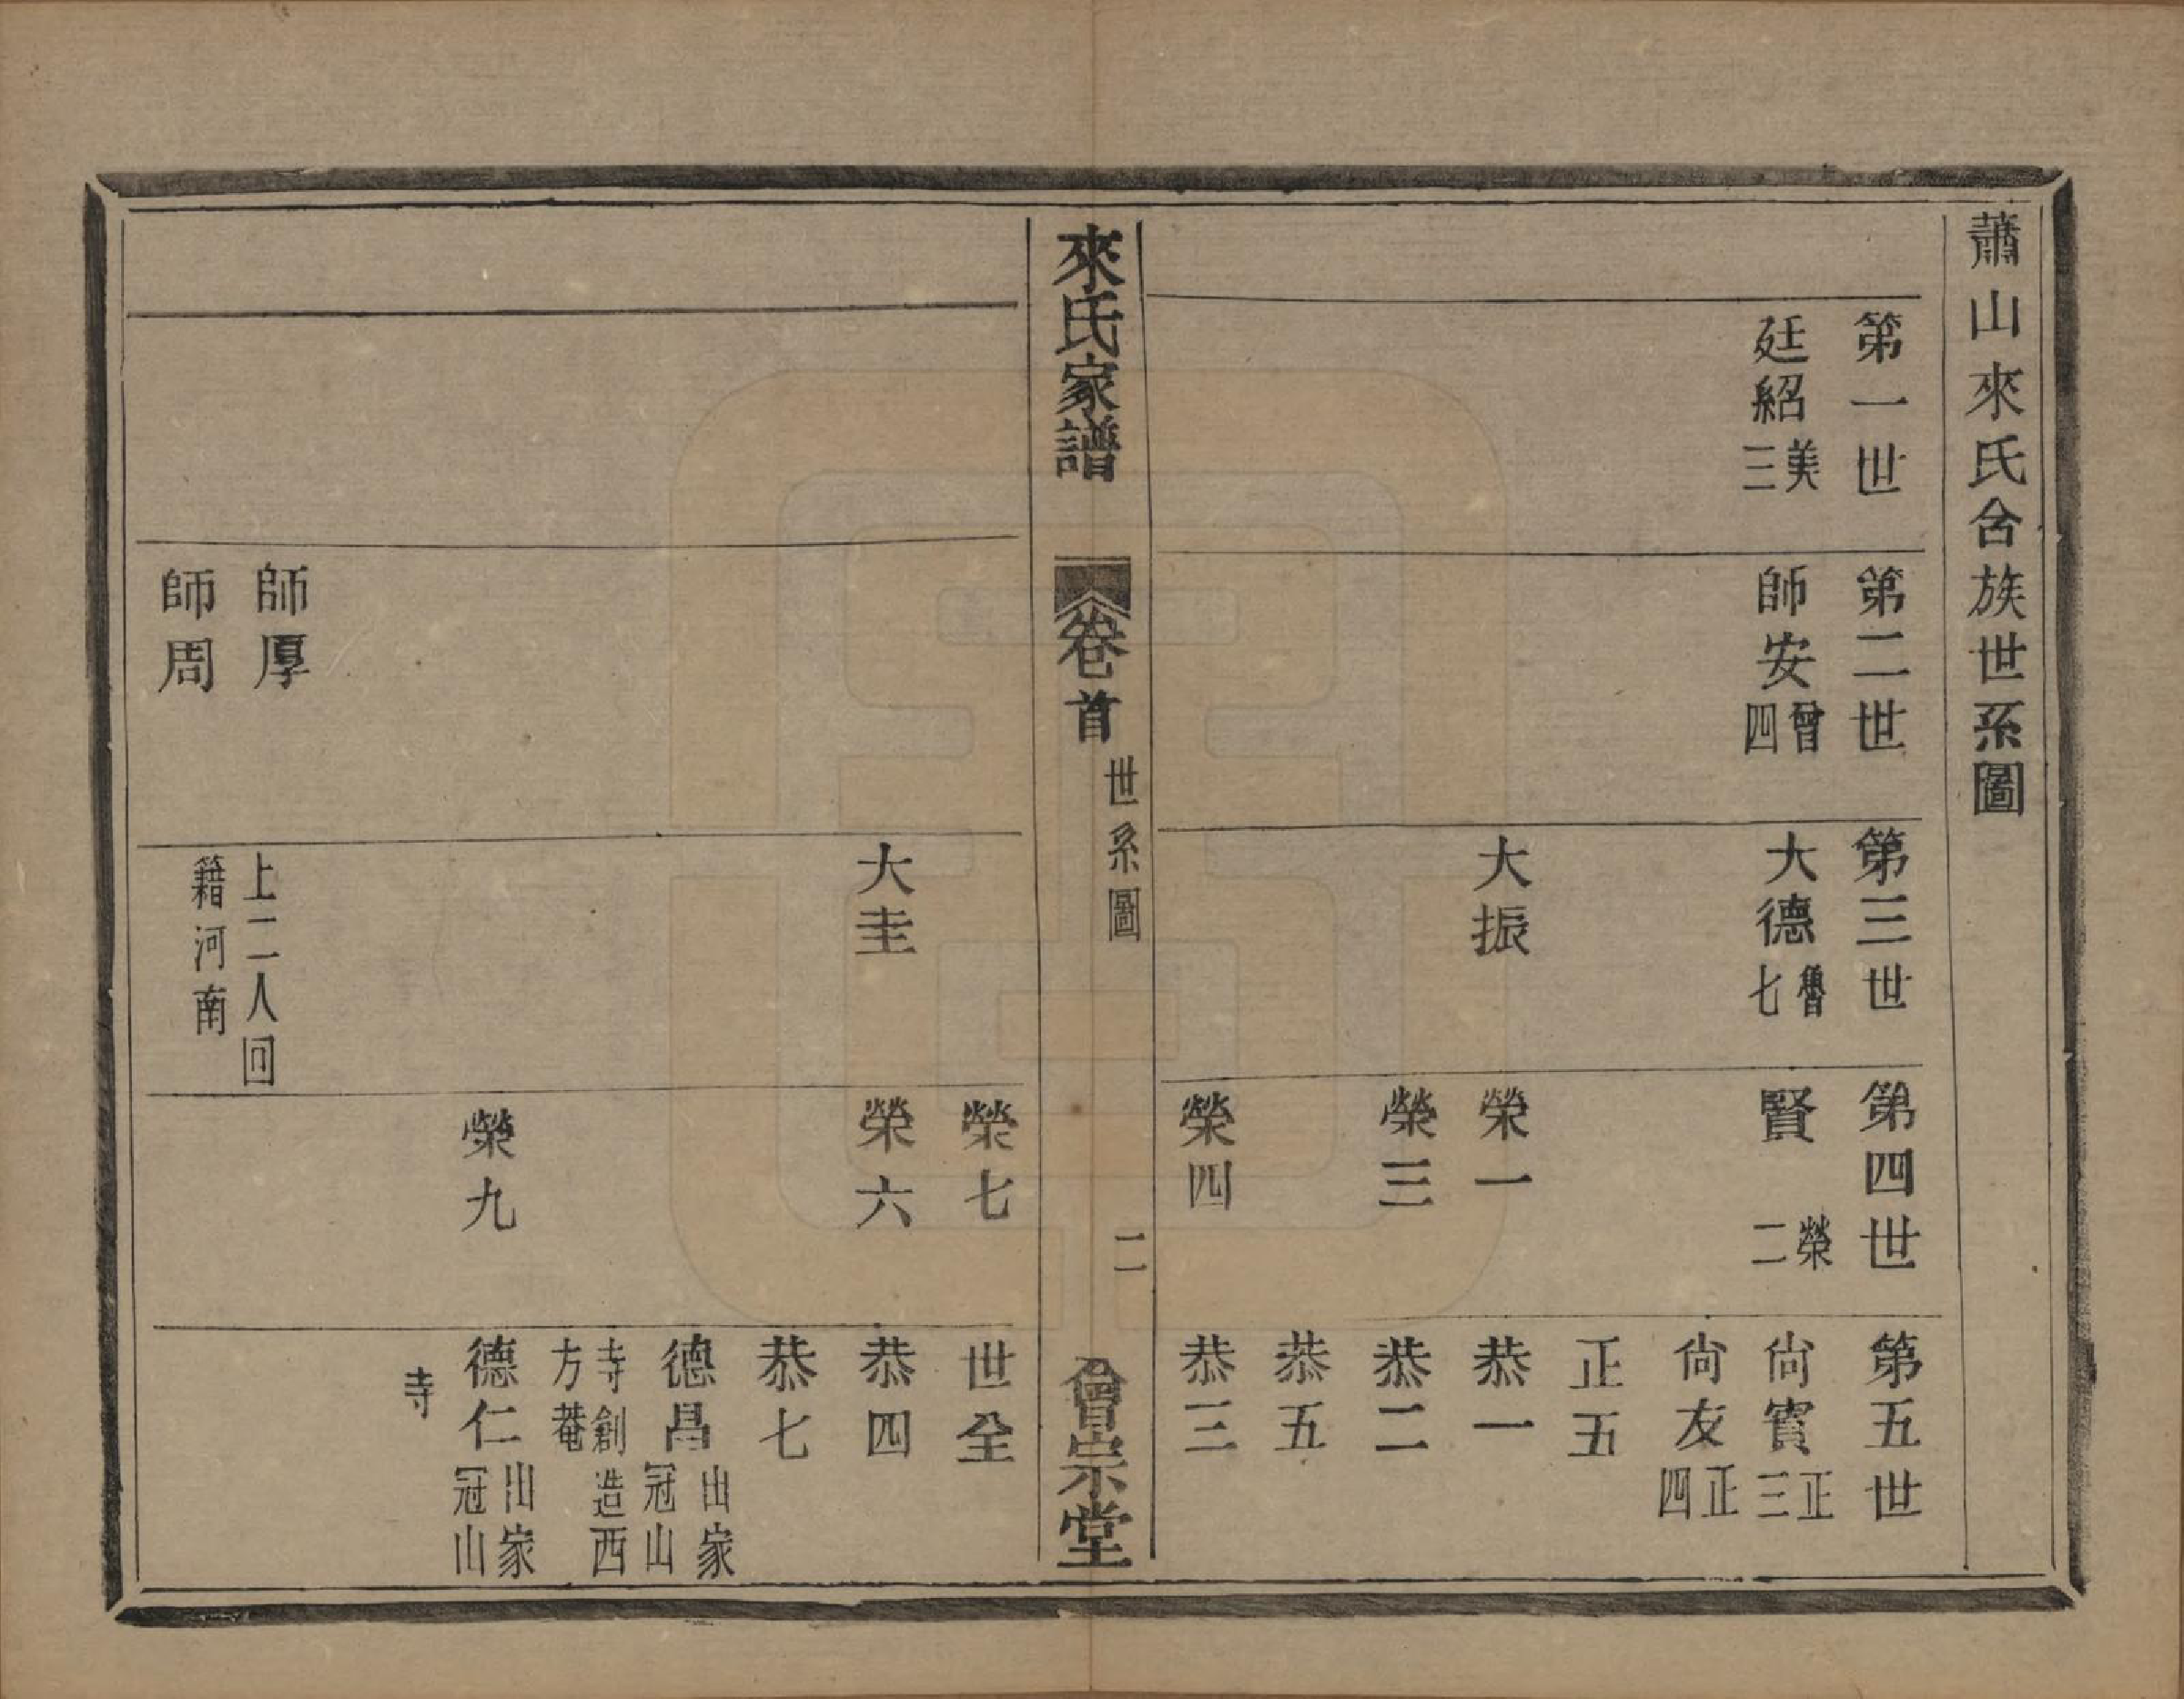 蕭山來氏合族世系圖
第一世
廷紹 美三
第二世
師安 曾四
第三世
大德 魯七
第四世
賢 榮二
第五世
尙賓 正三
尙友 正四
正五
大振
榮一
恭一
榮三
恭二
恭五
榮四
恭三
來氏家譜
卷首
世系圖
二
會宗堂
榮七
世全
大圭
榮六
恭四
恭七
德昌 出家冠山
寺創造西
方菴
榮九
德仁 出家冠山
寺
師厚
師周
上二人回
籍河南